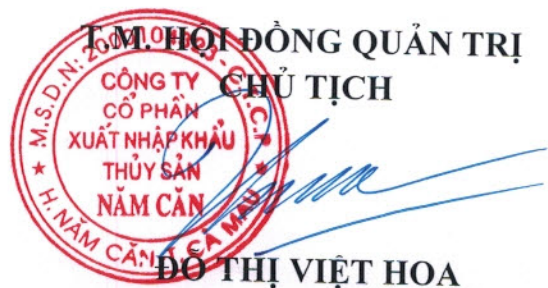 T.M. HỘI ĐỒNG QUẢN TRỊ
CHỦ TỊCH
CÔNG TY
CỔ PHẦN
XUẤT NHẬP KHẨU
THỦY SẢN
NĂM CĂN
M.S.D.N:
C.T.C.P
H. NĂM CĂN T. CÀ MAU
ĐỖ THỊ VIỆT HOA